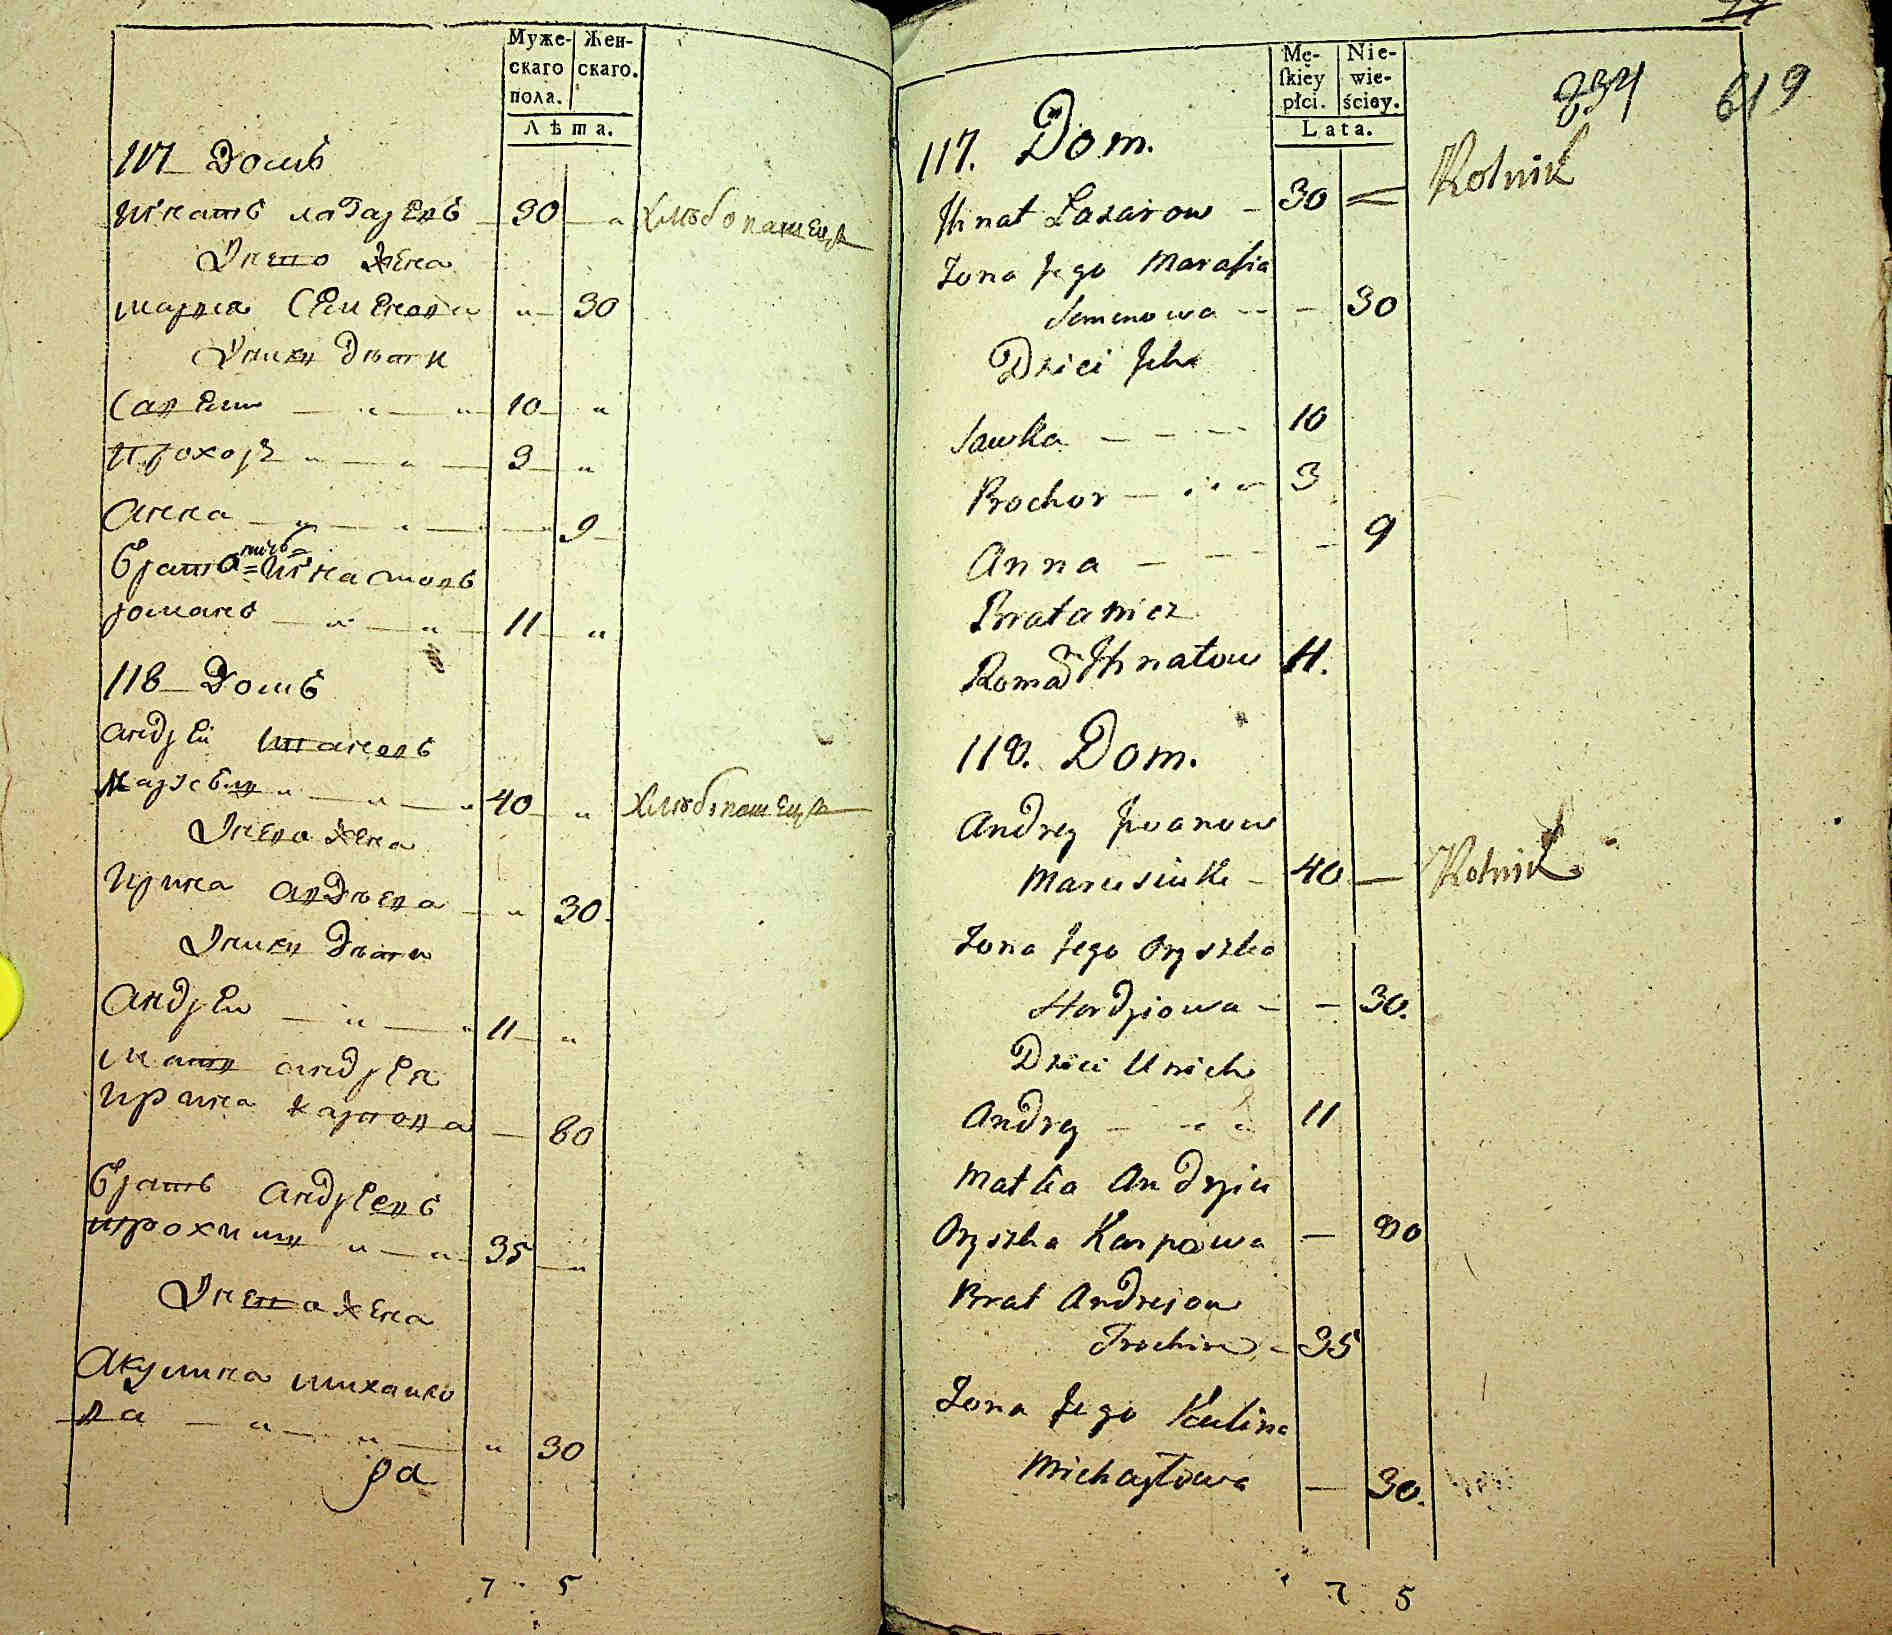 Муже- Жен-
скаго скаго.
пола.
Лѣта.
117 Домъ
Игнатъ Лазаревъ 30 Хлѣбопашецъ
У него жена
Марья Семенова 30
У нихъ дѣти
Савели 10
Прохоръ 3
Анна 9
братаничъ Игнатовъ
Романъ 11
118 Домъ
Андрей Ивановъ
40 Хлѣбопашецъ
У него жена
Ирина Авдѣева 30
У нихъ дѣти
Андреи 11
Мать Андрея
Ирина Карпова 80
братъ Андреевъ
Трохимъ 35
У него жена
Акулина Михаило
ва 30
7 5
Mę- Nie-
skiey wie-
płci. ściey.
Lata.
234 619
117. Dom.
Ihnat Lazarow 30 Rolnik
Żona Jego Marasia
Semenowa 30
Dzieci Ich
Sawka 10
Prochor 3
Anna 9
Bratanicz
Roman Ihnatow 11.
118. Dom.
Andrey Iwanow
40 Rolnik
Żona Jego Oryszka
Hordziowa 30.
Dzieci U nich
Andrey 11
Matka Andrzeia
Oryszka Karpowa 80
Brat Andrejow
Trochim 35
Żona Jego Kulina
Michayłowa 30.
7 5